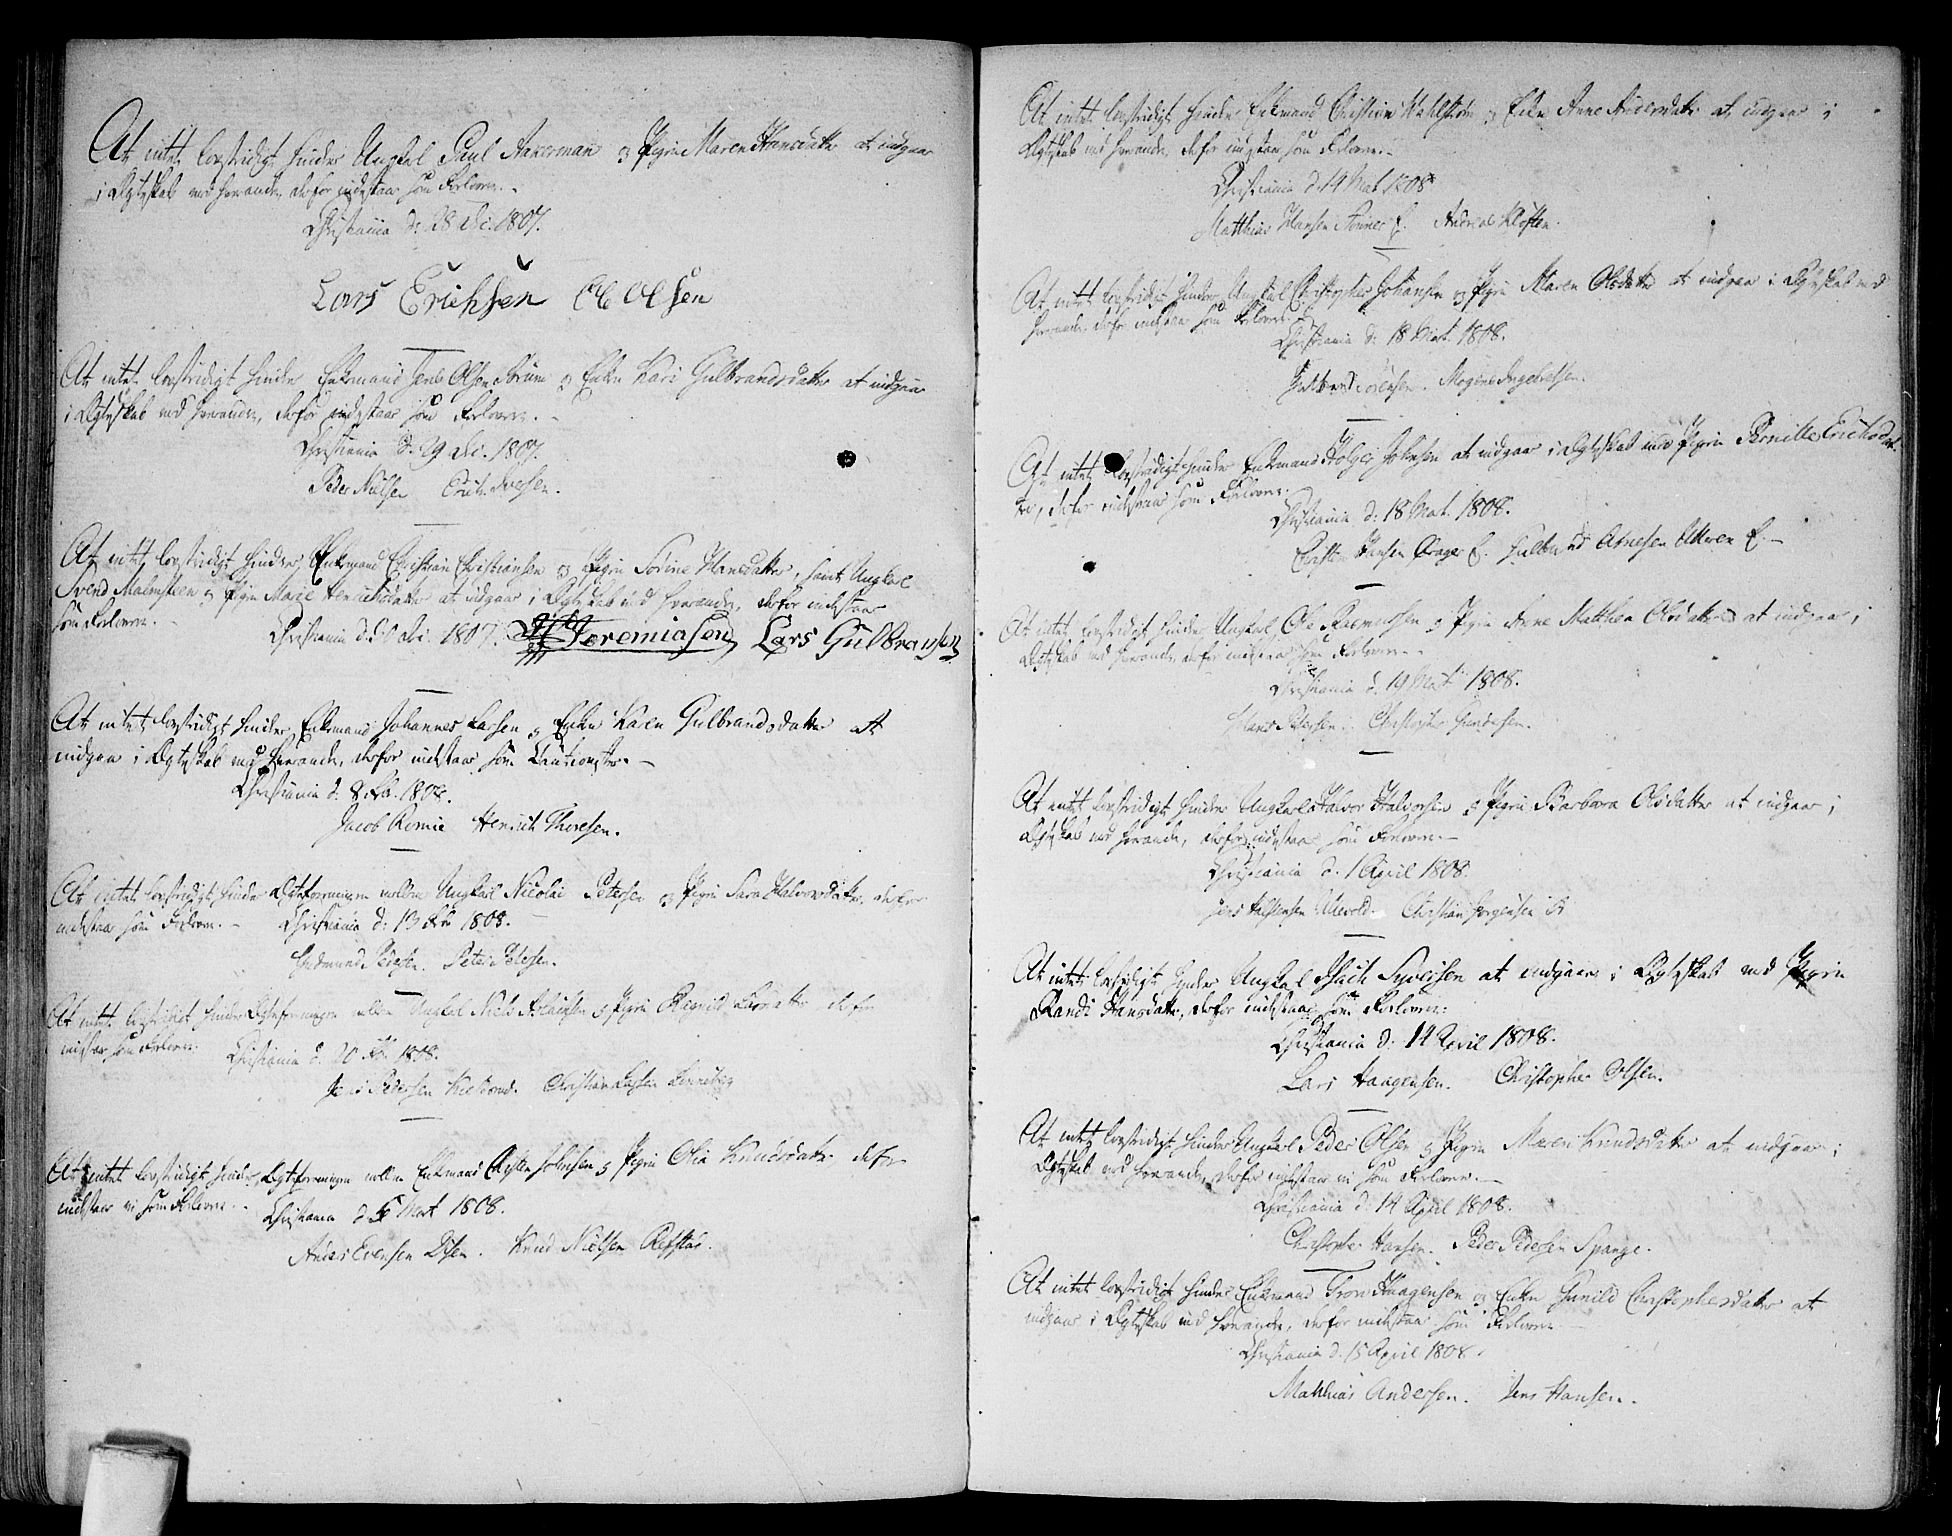 At intet lovstridigt hindrer Ungkal Paul Akerman og Pigen Maren Hansdatter at indgaae
i Ægteskab med hverandre, derfor indestaar som Forlovere.
Christiania d: 28 Dec. 1807.
Lars Erichsen Ole Olsen
At intet lovstridigt hindrer Enkemand Jens Olsen og Enken Kari Gulbrandsdatter at indgaae
i Ægteskab med hverandre, derfor indestaar som Forlovere.
Christiania d: 29 Dec. 1807.
Peder Nielsen Erich Iversen.
At intet lovstridigt hindrer, Enkemand Christian Christiansen og Pigen Sorine Hansdatter, samt Ungkarl
Svend Malmsteen og Pigen Marie Henrichsdatter at indgaae i Ægteskab med hverandre, derfor indestaar
som Forlovere.
Christiania d. 30 Dec. 1807. Jeremiasen Lars Gulbransen
At intet lovstridigt hindrer, Enkemand Johannes Larsen og Enken Karen Gulbrandsdatter at
indgaa i Ægteskab med hverandre, derfor indestaar som Cautionister.
Christiania d: 8 Feb. 1808.
Jacob Romie Henrich Thoresen.
At intet lovstridigt hindrer Ægteforeningen mellem Ungkarl Nicolai Petersen og Pigen Sara Halvorsdatter, derfor
indestaar som Forlovere.
Christiania d: 13 Feb 1808.
Gudmund Pedersen. Peter Petersen.
At intet lovstridigt hindrer Ægteforeningen mellem Ungkal Niels Aslaksen og Pigen Ragnild derfor
indestaar som Forlovere.
Christiania d. 20 Feb. 1808.
Jens Pedersen Christian Larsen
At intet lovstridigt hindrer, Ægteforeningen mellem Enkemand Christen Johnsen og Pigen Olia Knudsdatter derfor
indestaar vi som Forlovere.
Christiania d. 5 Mart 1808.
Anders Evensen Disen. Knud Nielsen Refstad.
At intet lovstridigt hindrer Enkemand Christian Wahlstrøm og Enken Anne Andersdatter at indgaae i
Ægteskab med hverandre, derfor indestaar som Forlovere.
Christiania d. 14 Mart. 1808
Matthias Hansen E. Andreas Kloften.
At intet lovstridigt hindrer Ungkarl Christopher Johansen og Pigen Maren Olsdatter at indgaae i Ægteskab med
hverandre, derfor indestaar som Forlovere.
Christiania d: 18 Mart. 1808.
Gulbrand Sørensen. Mogens Ingebretsen.
At intet lovstridigt hindrer Enkemand Holger Johnsen at indgaae i Ægteskab med Pigen Pernille Erichsdat-
ter, derfor indestaar som Forlovere.
Christiania d: 18 Mart. 1808.
Christen Hansen Brager E. Gulbrand Arnesen E.
At intet lovstridigt hindrer Ungkal, Ole Rasmussen og Pigen Anne Matthea Olsdatter at indgaae, i
Ægteskab med hverandre, derfor indestaar som Forlovere.
Christiania d. 19 Mart 1808.
Hans Petersen. Christopher Gundersen.
At intet lovstridigt hindrer Ungkarl Halvor Halvorsen og Pigen Barbara Olsdatter at indgaae i
Ægteskab med hverandre, derfor indestaar som Forlovere.
Christiania d. 1 April 1808.
Jens Halstensen Ullevold. Christian Jørgensen
At intet lovstridigt hindrer Ungkarl Isach Syversen at indgaae i Ægteskab med Pigen
Randi Hansdatter, derfor indestaar som Forlovere:
Christiania d: 14 April 1808.
Lars Haagensen. Christopher Olsen.
At intet lovstridigt hindrer Ungkarl Peder Olsen og Pigen Maren Knudsdatter at indgaae i
Ægteskab med hverandre, derfor indestaar vi som Forlovere.
Christiania d: 14 April 1808.
Christopher Hansen. Peder Pedersen Spange.
At intet lovstridigt hindrer Enkemand Tron Haagensen og Enken Gunild Christophersdatter at
indgaae i Ægteskab med hverandre, derfor indestaar som Forlovere.
Christiania d. 15 April 1808.
Mathias Andersen. Jens Hansen.